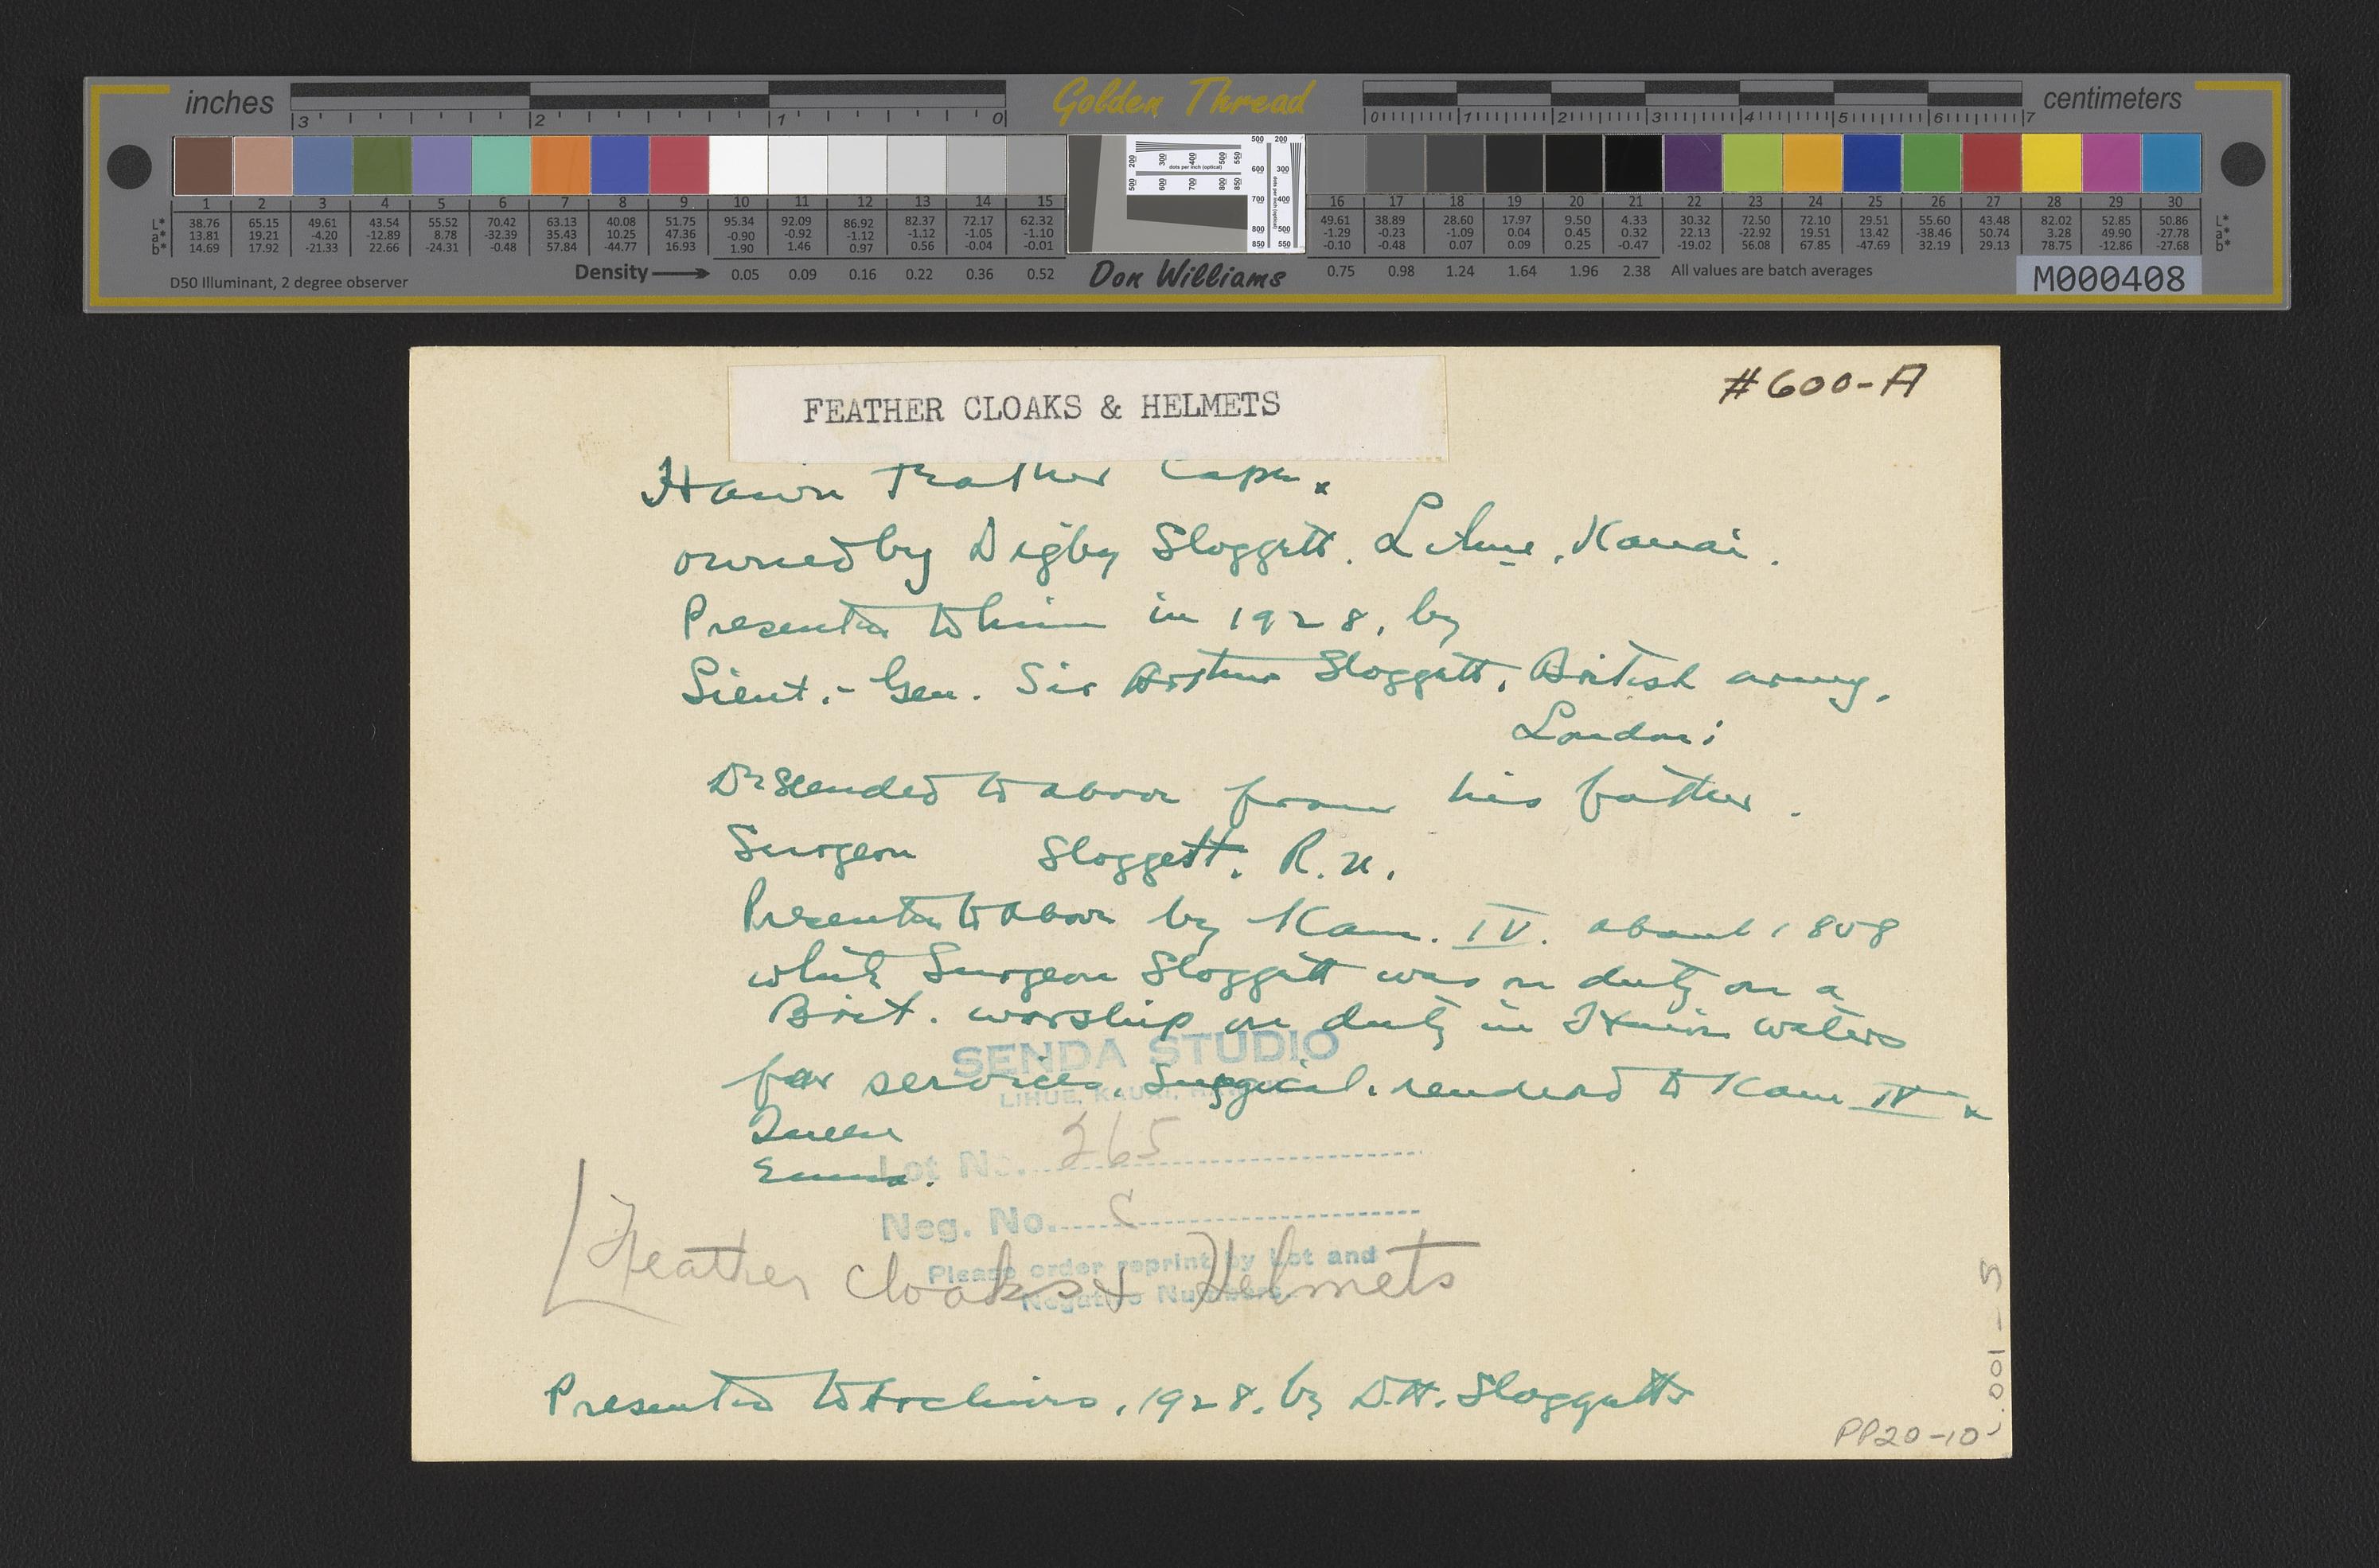 inches
Golden Thread
centimeters
3 2 1 0
0 1 2 3 4 5 6 7
1 2 3 4 5 6 7 8 9 10 11 12 13 14 15
16 17 18 19 20 21 22 23 24 25 26 27 28 29 30
L* 38.76 65.15 49.61 43.54 55.52 70.42 63.13 40.08 51.75 95.34 92.09 86.92 82.37 72.17 62.32
49.61 38.89 28.60 17.97 9.50 4.33 30.32 72.50 72.10 29.51 55.60 43.48 82.02 52.85 50.86 L*
a* 13.81 19.21 -4.20 -12.89 8.78 -32.39 35.43 10.25 47.36 -0.90 -0.92 -1.12 -1.12 -1.05 -1.10
-1.29 -0.23 -1.09 0.04 0.45 0.32 22.13 -22.92 19.51 13.42 -38.46 50.74 3.28 49.90 -27.78 a*
b* 14.69 17.92 -21.33 22.66 -24.31 -0.48 57.84 -44.77 16.93 1.90 1.46 0.97 0.56 -0.04 -0.01
-0.10 -0.48 0.07 0.09 0.25 -0.47 -19.02 56.08 67.85 -47.69 32.19 29.13 78.75 -12.86 -27.68 b*
D50 Illuminant, 2 degree observer
Density 0.05 0.09 0.16 0.22 0.36 0.52
Don Williams
0.75 0.98 1.24 1.64 1.96 2.38 All values are batch averages
M000408
FEATHER CLOAKS & HELMETS
#600-A
Hawn Feather Cape.
owned by Digby Sloggett. Lihue, Kauai.
Presented to him in 1928, by
Lieut.- Gen. Sir Arthur Sloggett, British army,
London;
Descended to above from his father.
Surgeon Sloggett, R.N.
Presented to above by Kam. IV. about 1858
while Surgeon Sloggett was on duty on a
Brit. warship on duty in Hawn waters
for services, Surgical, rendered to Kam IV &
Queen
Emma.
SENDA STUDIO
LIHUE, KAUAI,
Lot No. 265
Neg. No. C
Please order reprint by Lot and
Negative Numbers
Feather Cloaks & Helmets
Presented to Archives, 1928, by D.H. Sloggett
PP20-10
.001-5